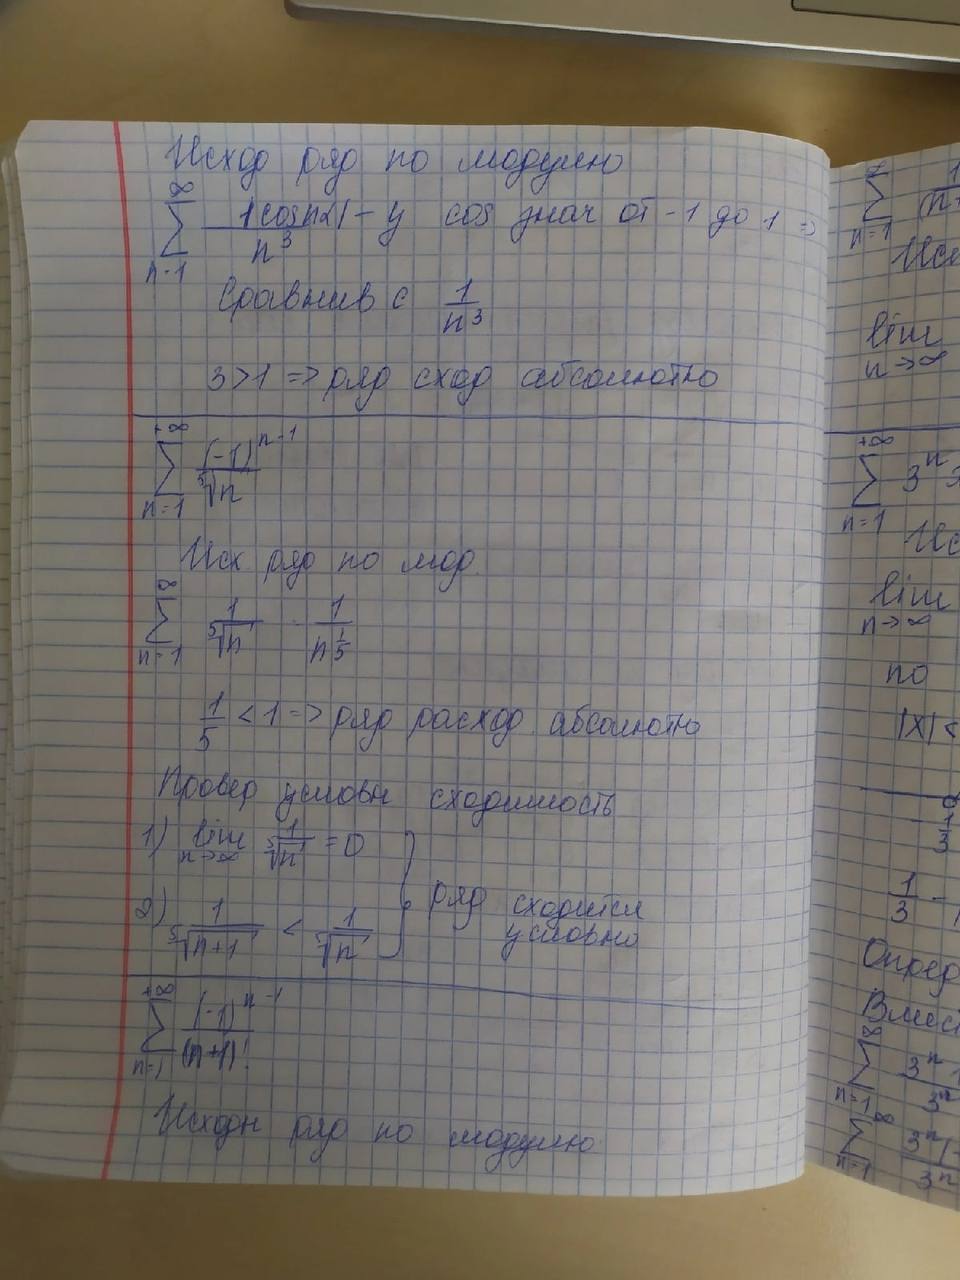 Исход ряд по модулю
∞ ∑ n=1 |cosnα| / n³ - у cos знач от -1 до 1 =>
Сравнив с 1/n³
3>1 => ряд сход абсолютно
+∞ ∑ n=1 (-1)^(n-1) / ⁵√n
Исх ряд по мод.
∞ ∑ n=1 1/⁵√n - 1/n^(1/5)
1/5 < 1 => ряд расход абсолютно
Провер условн сходимость
1) lim n→∞ 1/⁵√n = 0
2) 1/⁵√(n+1) < 1/⁵√n
ряд сходится
условно
+∞ ∑ n=1 (-1)^(n-1) / (n+1)!
Исходн ряд по модулю
∑ n=1
lim
n→∞
+∞ ∑ n=1 3ⁿ
lim
n→∞
по
|x|<
1/3
1/3 -
Опред
∞ ∑ n=1 3ⁿ / 3ⁿ
∞ ∑ n=1 3ⁿ / 3ⁿ